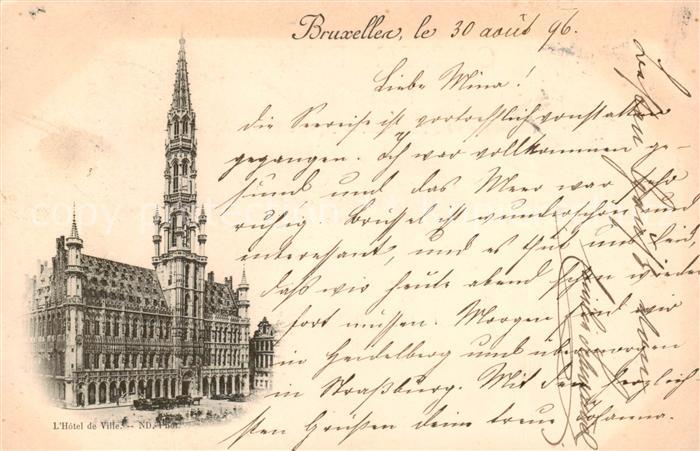 Bruxelles, le 30 août 96.
Liebe Mina!
Die Seereise ist vortrefflich vonstatten
gegangen. Ich war vollkommen ge-
sund und das Meer war sehr
ruhig. Brüssel ist wunderschön und
interessant, und es tut uns leid
dass wir heute abend schon wieder
fort müssen. Morgen sind wir
in Heidelberg und übermorgen
in Straßburg. Mit den herzlich
sten Grüßen deine treue Johanna.
L'Hôtel de Ville. -- ND. Phot.